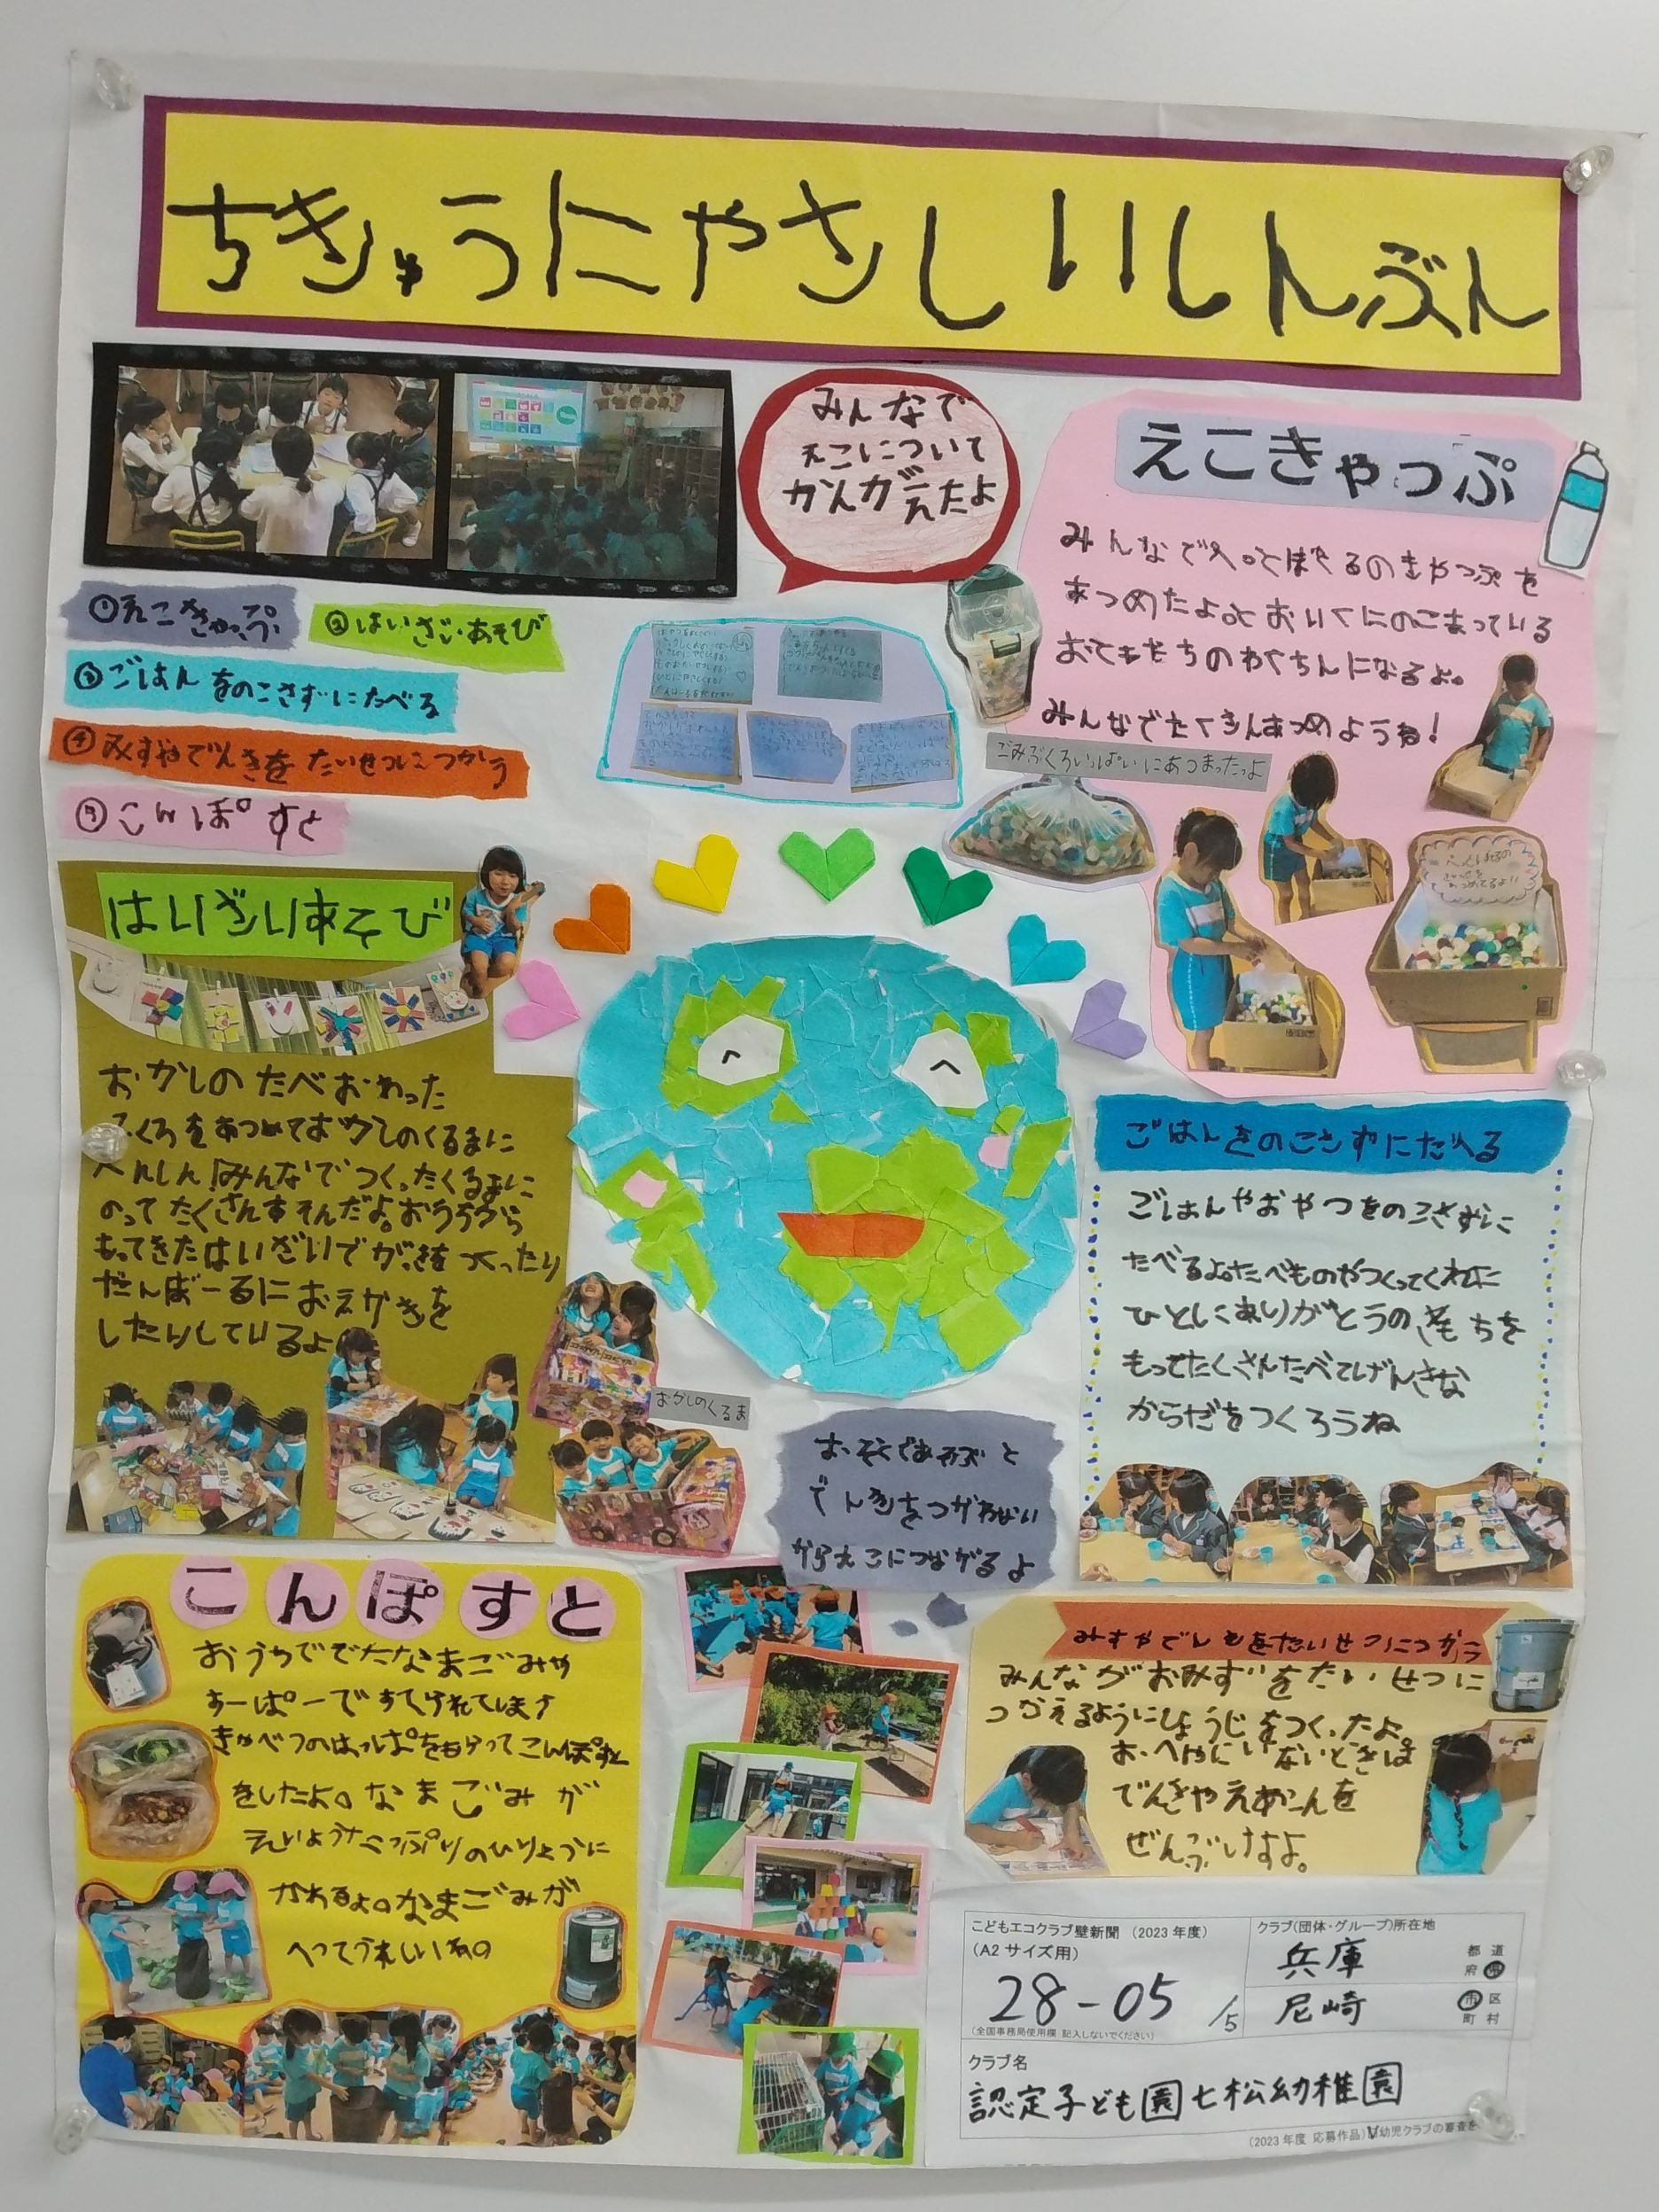 ちきゅうにやさしいしんぶん
みんなで
えこについて
かんがえたよ
①えこきゃっぷ
②はいざいあそび
③ごはんをのこさずにたべる
④みずやでんきをたいせつにつかう
⑤こんぽすと
えこきゃっぷ
みんなでぺっとぼとるのきゃっぷを
あつめたよ。とおいくにのこまっている
おともだちのわくちんになるよ。
みんなでたくさんあつめようね!
ごみぶくろいっぱいにあつまったよ
はいざいあそび
おかしのたべおわった
ふくろをあつめておかしのくるまに
へんしん!みんなでつくったくるまに
のってたくさんあそんだよ。おうちから
もってきたはいざいでがっきをつくったり
だんぼーるにおえかきを
したりしているよ
おかしのくるま
ごはんをのこさずにたべる
ごはんやおやつをのこさずに
たべるよ。たべものやつくってくれた
ひとにありがとうのきもちを
もってたくさんたべてげんきな
からだをつくろうね
おそとであそぶと
でんきをつかわない
からえこにつながるよ
こんぽすと
おうちででたなまごみや
すーぱーですてられてしまう
きゃべつのはっぱをもらってこんぽすと
をしたよ。なまごみが
えいようたっぷりのひりょうに
かわるよ。なまごみが
へってうれしいね
みずやでんきをたいせつにつかう
みんながおみずをたいせつに
つかえるようにひょうじをつくったよ。
おへやにいないときは
でんきやえあこんを
ぜんぶけすよ。
こどもエコクラブ壁新聞 (2023年度)
(A2サイズ用)
28-05 /5
(全国事務局使用欄 記入しないでください)
クラブ(団体・グループ)所在地
兵庫 都道府県
尼崎 市区町村
クラブ名
認定子ども園七松幼稚園
(2023年度 応募作品)
幼児クラブの審査を